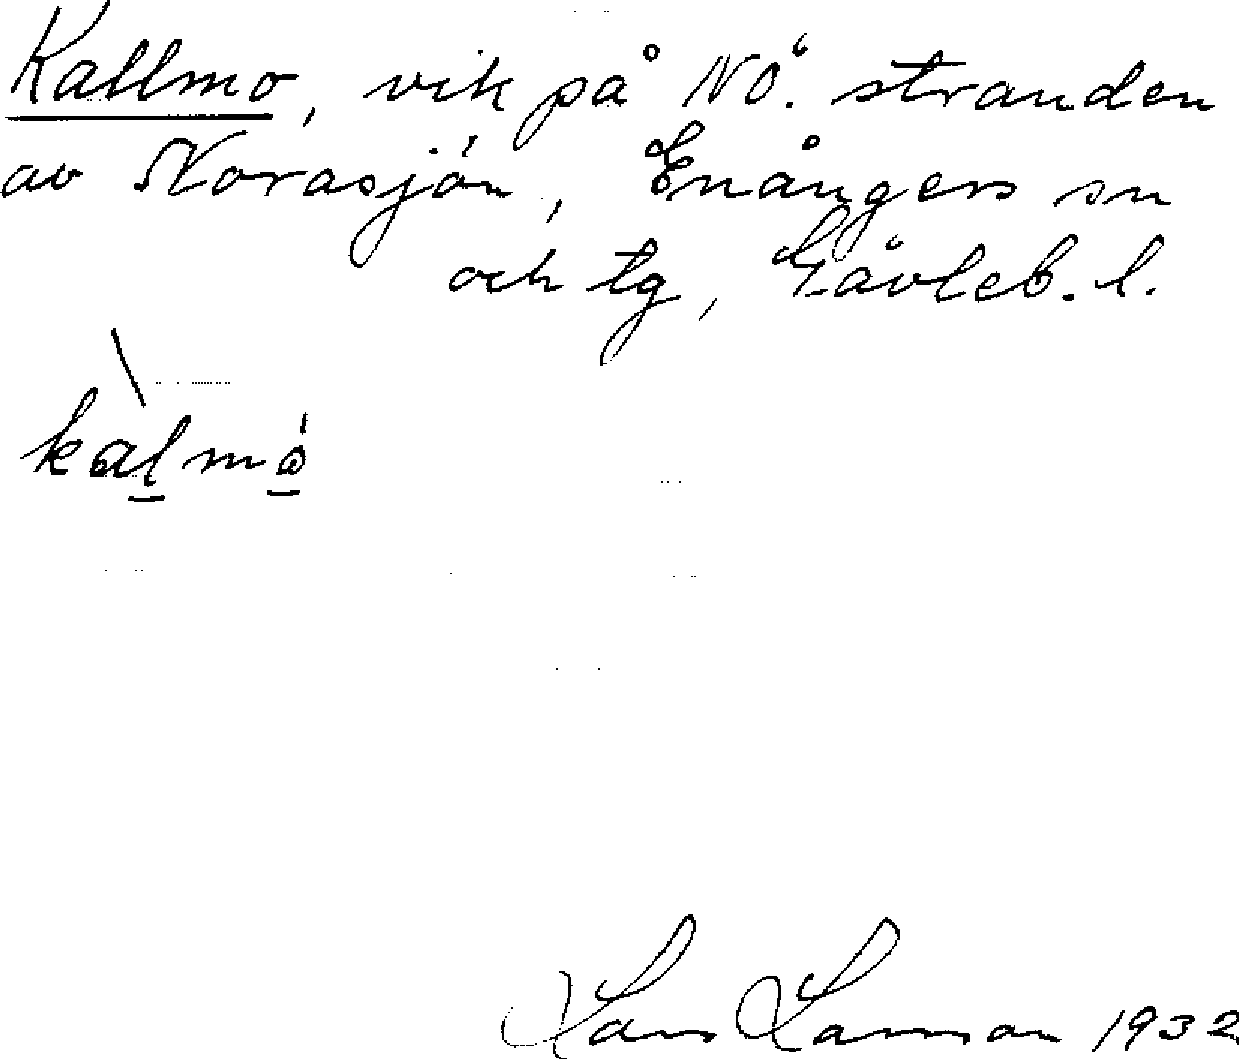 Kallmo, vik på NÖ. stranden
av Norasjön, Enångers sn
och tg, Gävleb. l.
kàlmå
Lars Larsson 1932